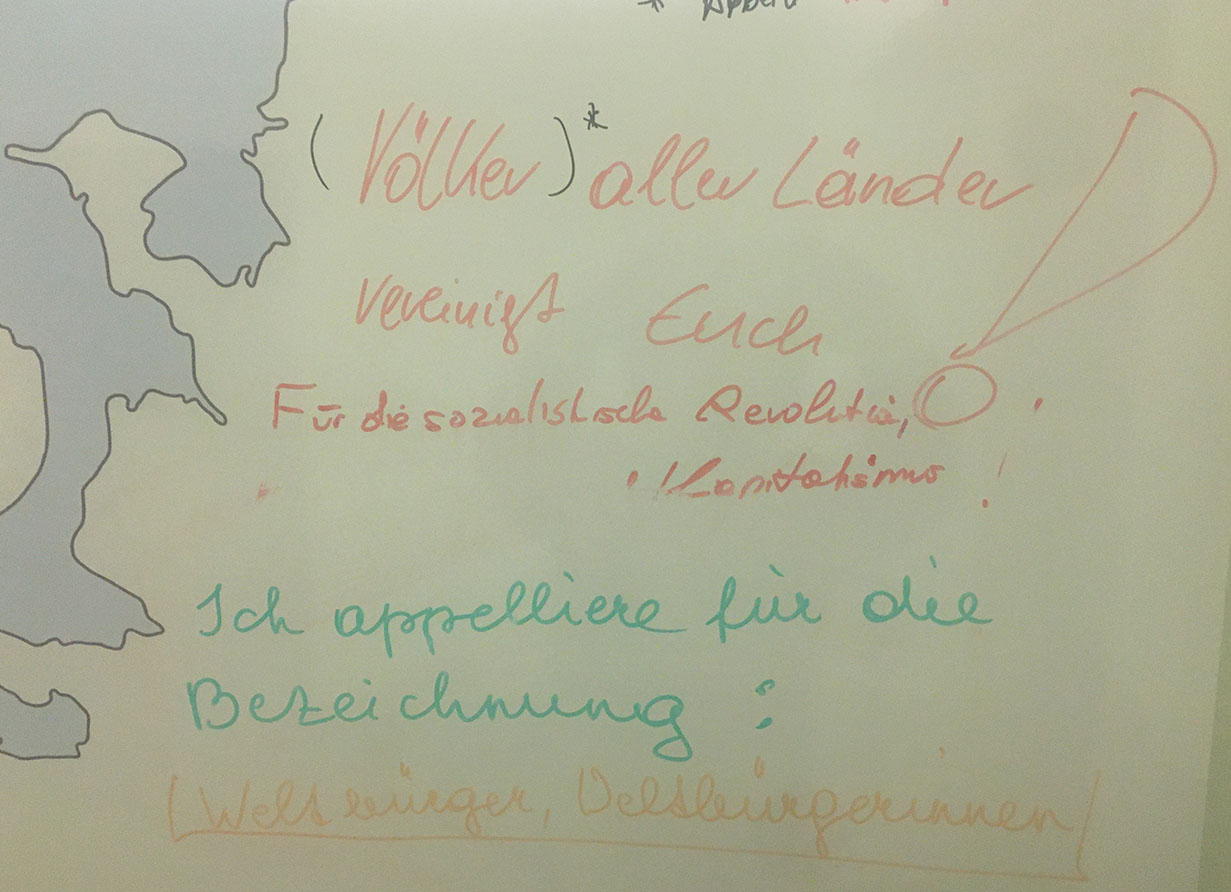 (Völker)* aller Länder
vereinigt Euch
Für die sozialistische Revolution,
Kapitalismus !
Ich appelliere für die
Bezeichnung :
Weltbürger, Weltbürgerinnen